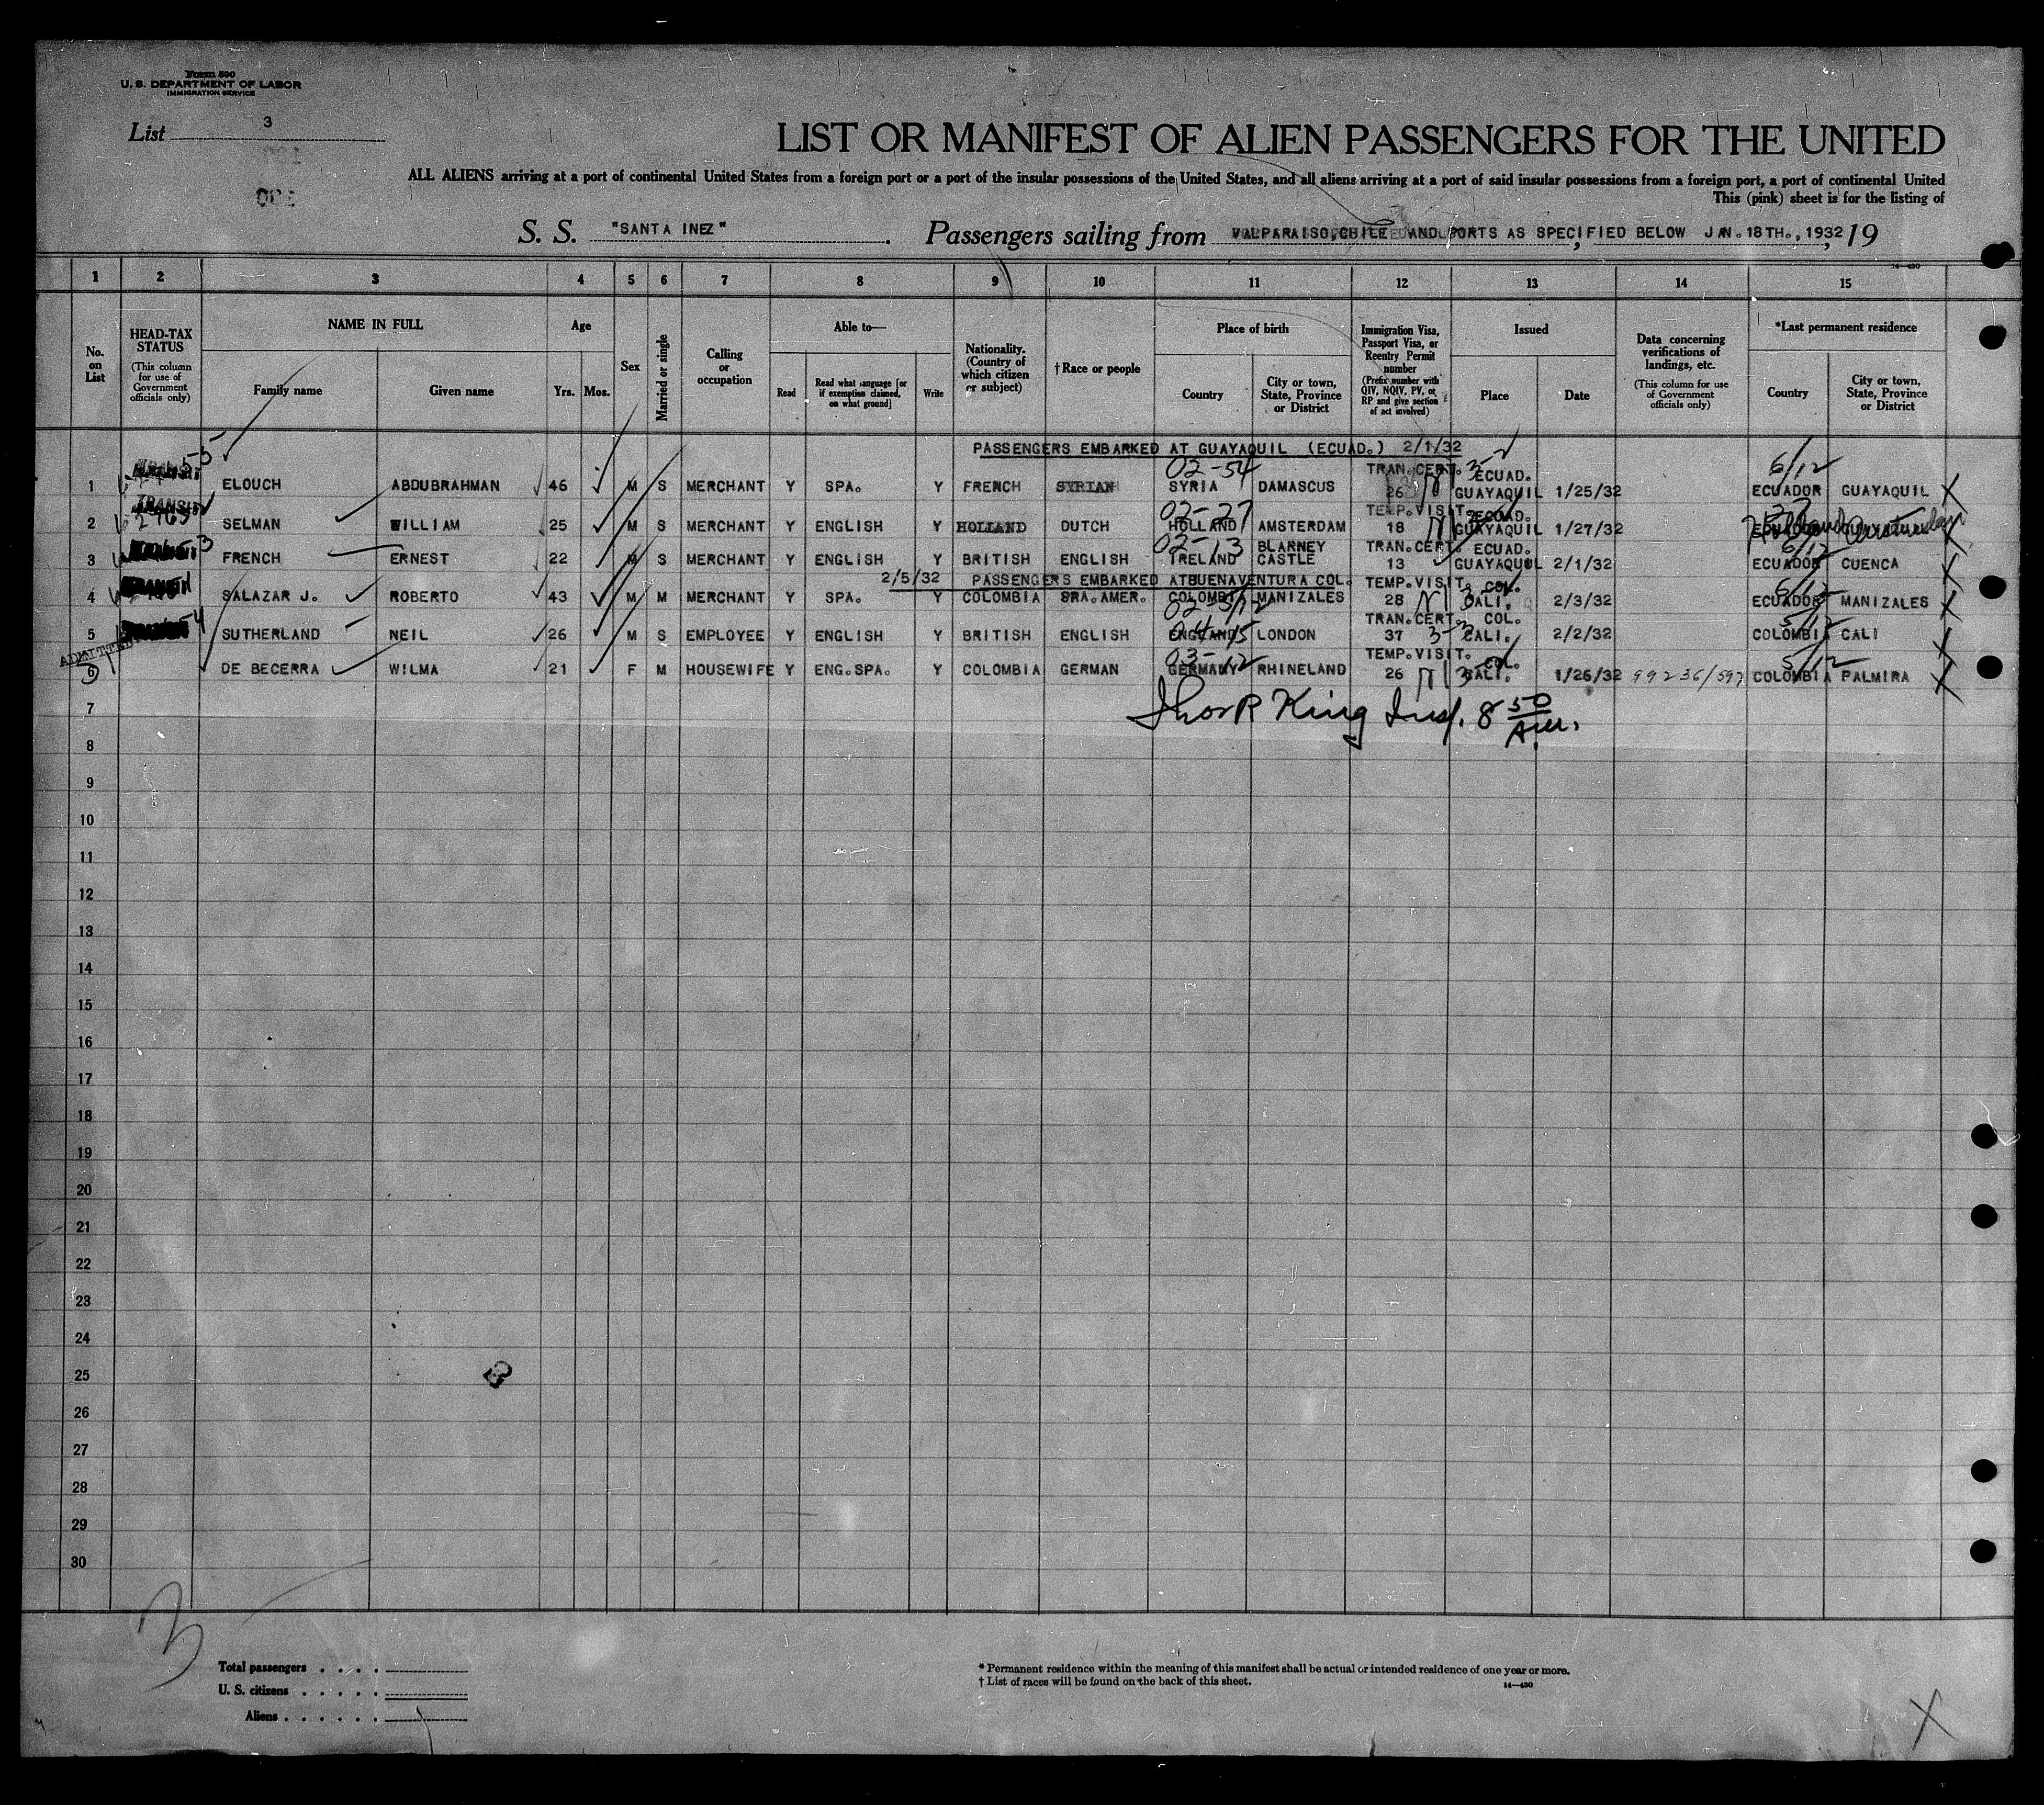 Form 500
U. S. DEPARTMENT OF LABOR
IMMIGRATION SERVICE
List 3
LIST OR MANIFEST OF ALIEN PASSENGERS FOR THE UNITED
ALL ALIENS arriving at a port of continental United States from a foreign port or a port of the insular possessions of the United States, and all aliens arriving at a port of said insular possessions from a foreign port, a port of continental United
This (pink) sheet is for the listing of
S. S. "SANTA INEZ". Passengers sailing from VALPARAISO, CHILE AND PORTS AS SPECIFIED BELOW JAN. 18TH., 1932, 19
14—430
1 2 3 4 5 6 7 8 9 10 11 12 13 14 15
No. on List
HEAD-TAX STATUS (This column for use of Government officials only)
NAME IN FULL Family name Given name
Age Yrs. Mos.
Sex
Married or single
Calling or occupation
Able to— Read Read what language [or if exemption claimed, on what ground] Write
Nationality. (Country of which citizen or subject)
†Race or people
Place of birth Country City or town, State, Province or District
Immigration Visa, Passport Visa, or Reentry Permit number (Prefix number with QIV, NQIV, PV, or RP and give section of act involved)
Issued Place Date
Data concerning verifications of landings, etc. (This column for use of Government officials only)
*Last permanent residence Country City or town, State, Province or District
PASSENGERS EMBARKED AT GUAYAQUIL (ECUAD.) 2/1/32
02-54 TRAN.CERT. ECUAD. 6/12
1 ELOUCH ABDUBRAHMAN 46 M S MERCHANT Y SPA. Y FRENCH SYRIAN SYRIA DAMASCUS 26 GUAYAQUIL 1/25/32 ECUADOR GUAYAQUIL X
TRANSIT 02-27 TEMP.VISIT. ECUAD.
2 SELMAN WILLIAM 25 M S MERCHANT Y ENGLISH Y HOLLAND DUTCH HOLLAND AMSTERDAM 18 GUAYAQUIL 1/27/32 Holland Amsterdam X
02-13 BLARNEY TRAN.CERT. ECUAD. 6/12
3 FRENCH ERNEST 22 M S MERCHANT Y ENGLISH Y BRITISH ENGLISH IRELAND CASTLE 13 GUAYAQUIL 2/1/32 ECUADOR CUENCA X
2/5/32 PASSENGERS EMBARKED AT BUENAVENTURA COL. TEMP.VISIT. COL. 6/12
4 SALAZAR J. ROBERTO 43 M M MERCHANT Y SPA. Y COLOMBIA SPA.AMER. COLOMBIA MANIZALES 28 CALI. 2/3/32 ECUADOR MANIZALES X
TRAN.CERT. COL. 5/12
5 SUTHERLAND NEIL 26 M S EMPLOYEE Y ENGLISH Y BRITISH ENGLISH ENGLAND LONDON 37 3-3 CALI. 2/2/32 COLOMBIA CALI X
ADMITTED 03-12 TEMP.VISIT. COL. 5/12
6 DE BECERRA WILMA 21 F M HOUSEWIFE Y ENG.SPA. Y COLOMBIA GERMAN GERMANY RHINELAND 26 CALI. 1/26/32 99236/597 COLOMBIA PALMIRA X
7 Thos R King Insp. 8 50 Am.
8
9
10
11
12
13
14
15
16
17
18
19
20
21
22
23
24
25
26
27
28
29
30
3
Total passengers . . . .
U. S. citizens . . . . .
Aliens . . . . . .
* Permanent residence within the meaning of this manifest shall be actual or intended residence of one year or more.
† List of races will be found on the back of this sheet.
14—430
X